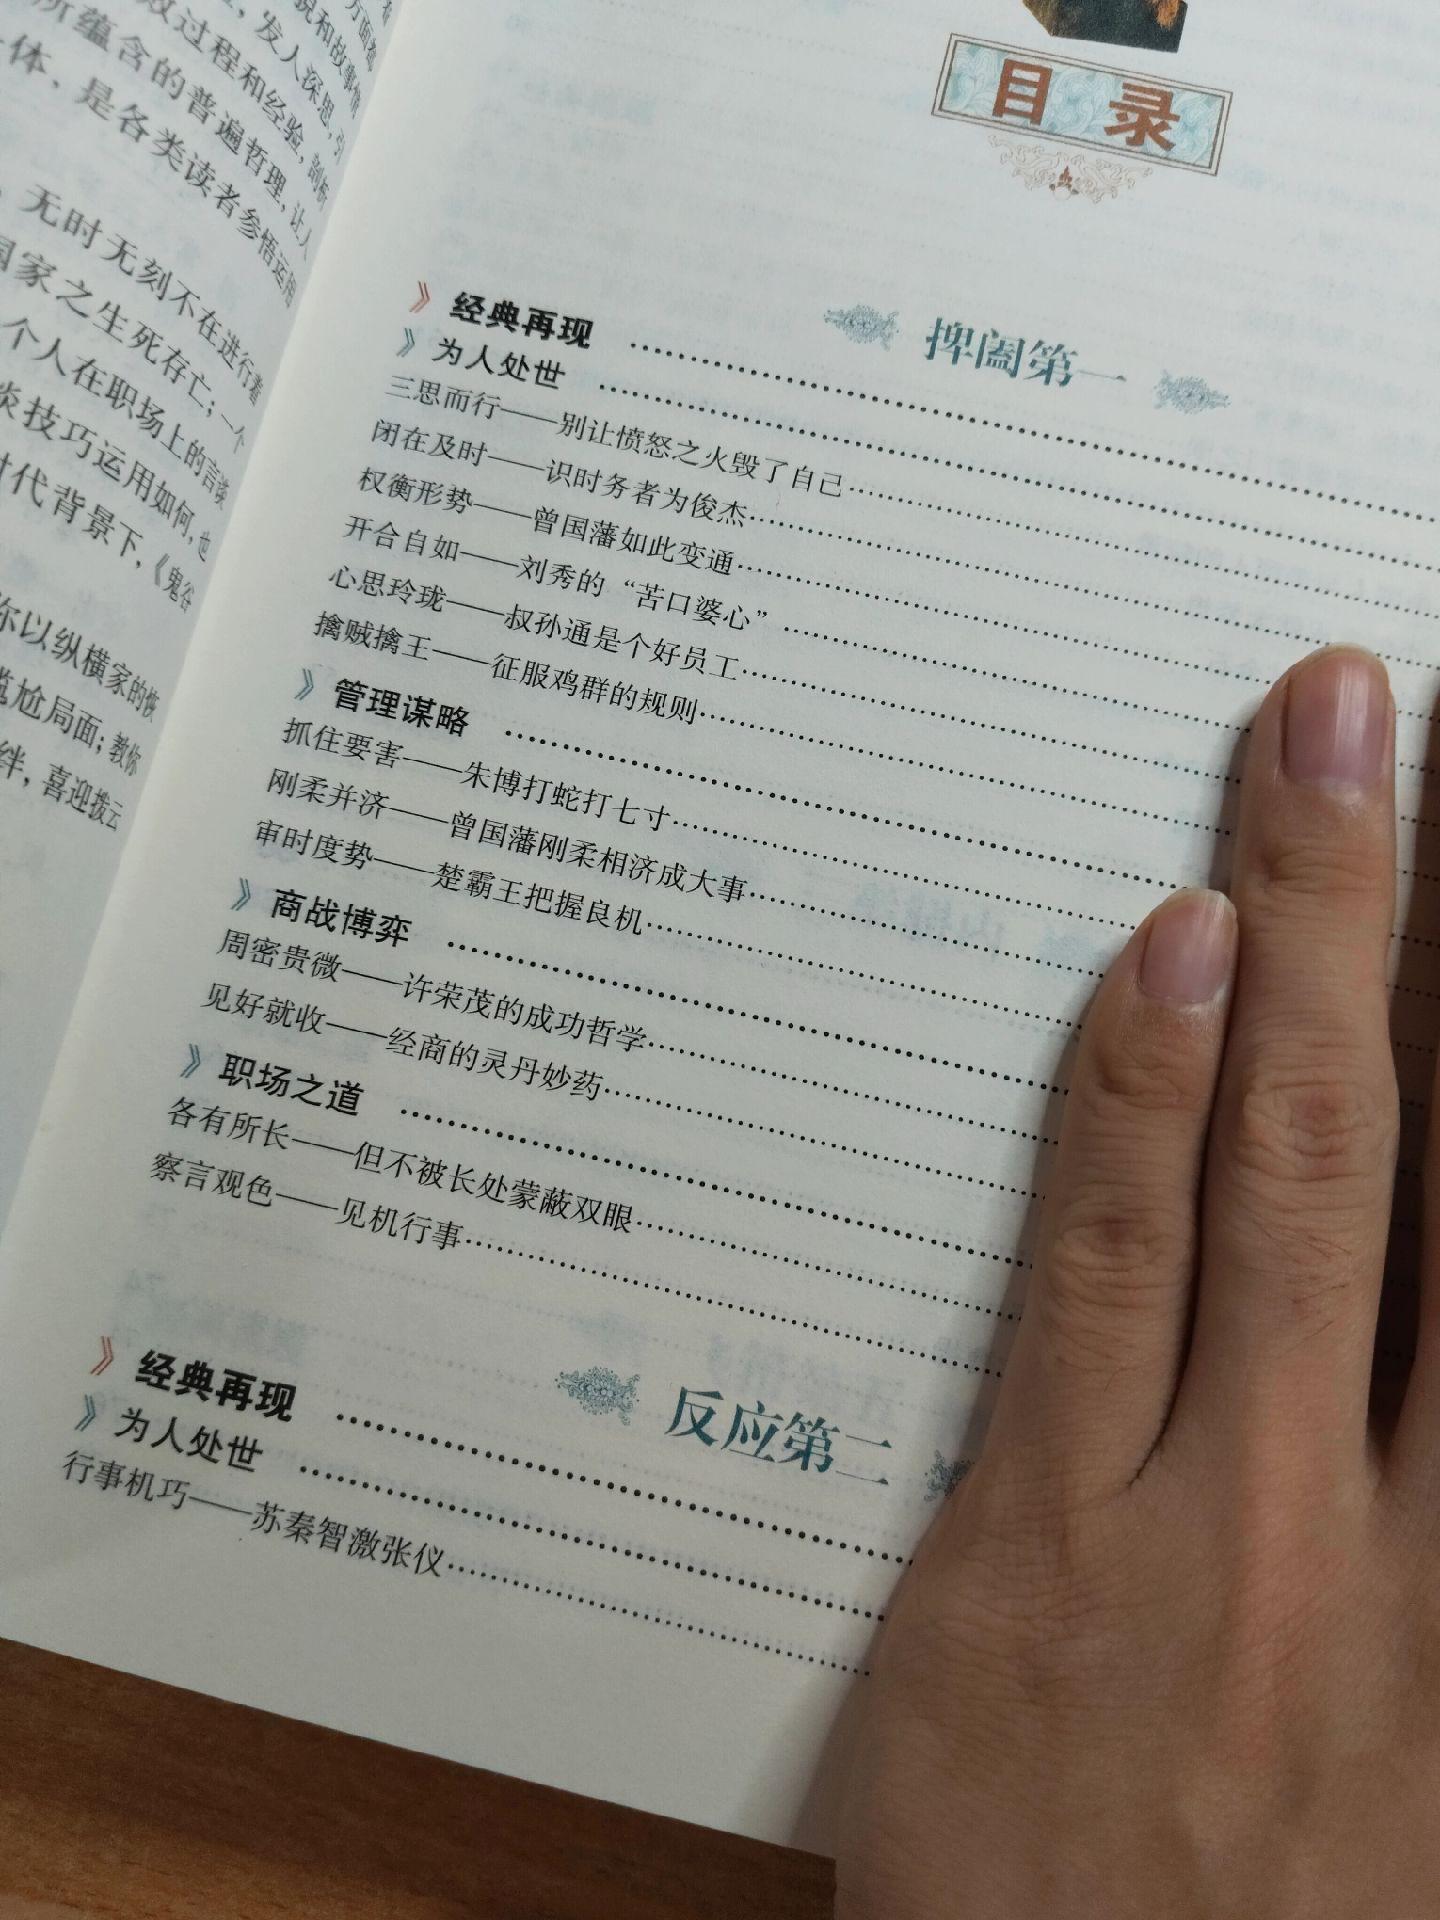 发人深思,引
败过程和经验,剖析
所蕴含的普遍哲理,让人
体,是各类读者参悟运用
无时无刻不在进行着
国家之生死存亡;一个
个人在职场上的言谈
谈技巧运用如何,也
时代背景下,《鬼谷
你以纵横家的恢
尴尬局面;教你
绊,喜迎拨云
目录
捭阖第一
》经典再现
》为人处世
三思而行——别让愤怒之火毁了自己
闭在及时——识时务者为俊杰
权衡形势——曾国藩如此变通
开合自如——刘秀的“苦口婆心”
心思玲珑——叔孙通是个好员工
擒贼擒王——征服鸡群的规则
》管理谋略
抓住要害——朱博打蛇打七寸
刚柔并济——曾国藩刚柔相济成大事
审时度势——楚霸王把握良机
》商战博弈
周密贵微——许荣茂的成功哲学
见好就收——经商的灵丹妙药
》职场之道
各有所长——但不被长处蒙蔽双眼
察言观色——见机行事
反应第二
》经典再现
》为人处世
行事机巧——苏秦智激张仪